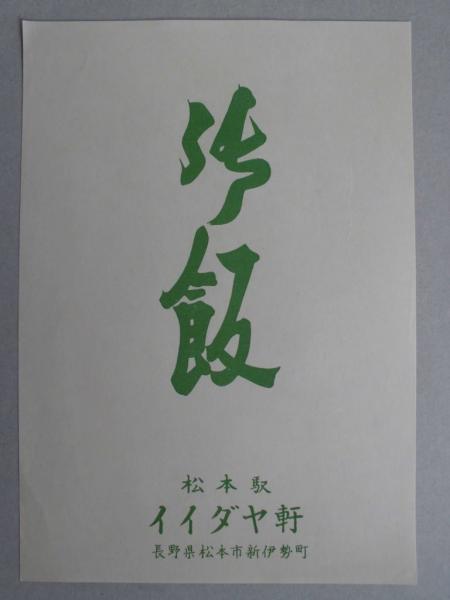 御飯
松本駅
イイダヤ軒
長野県松本市新伊勢町